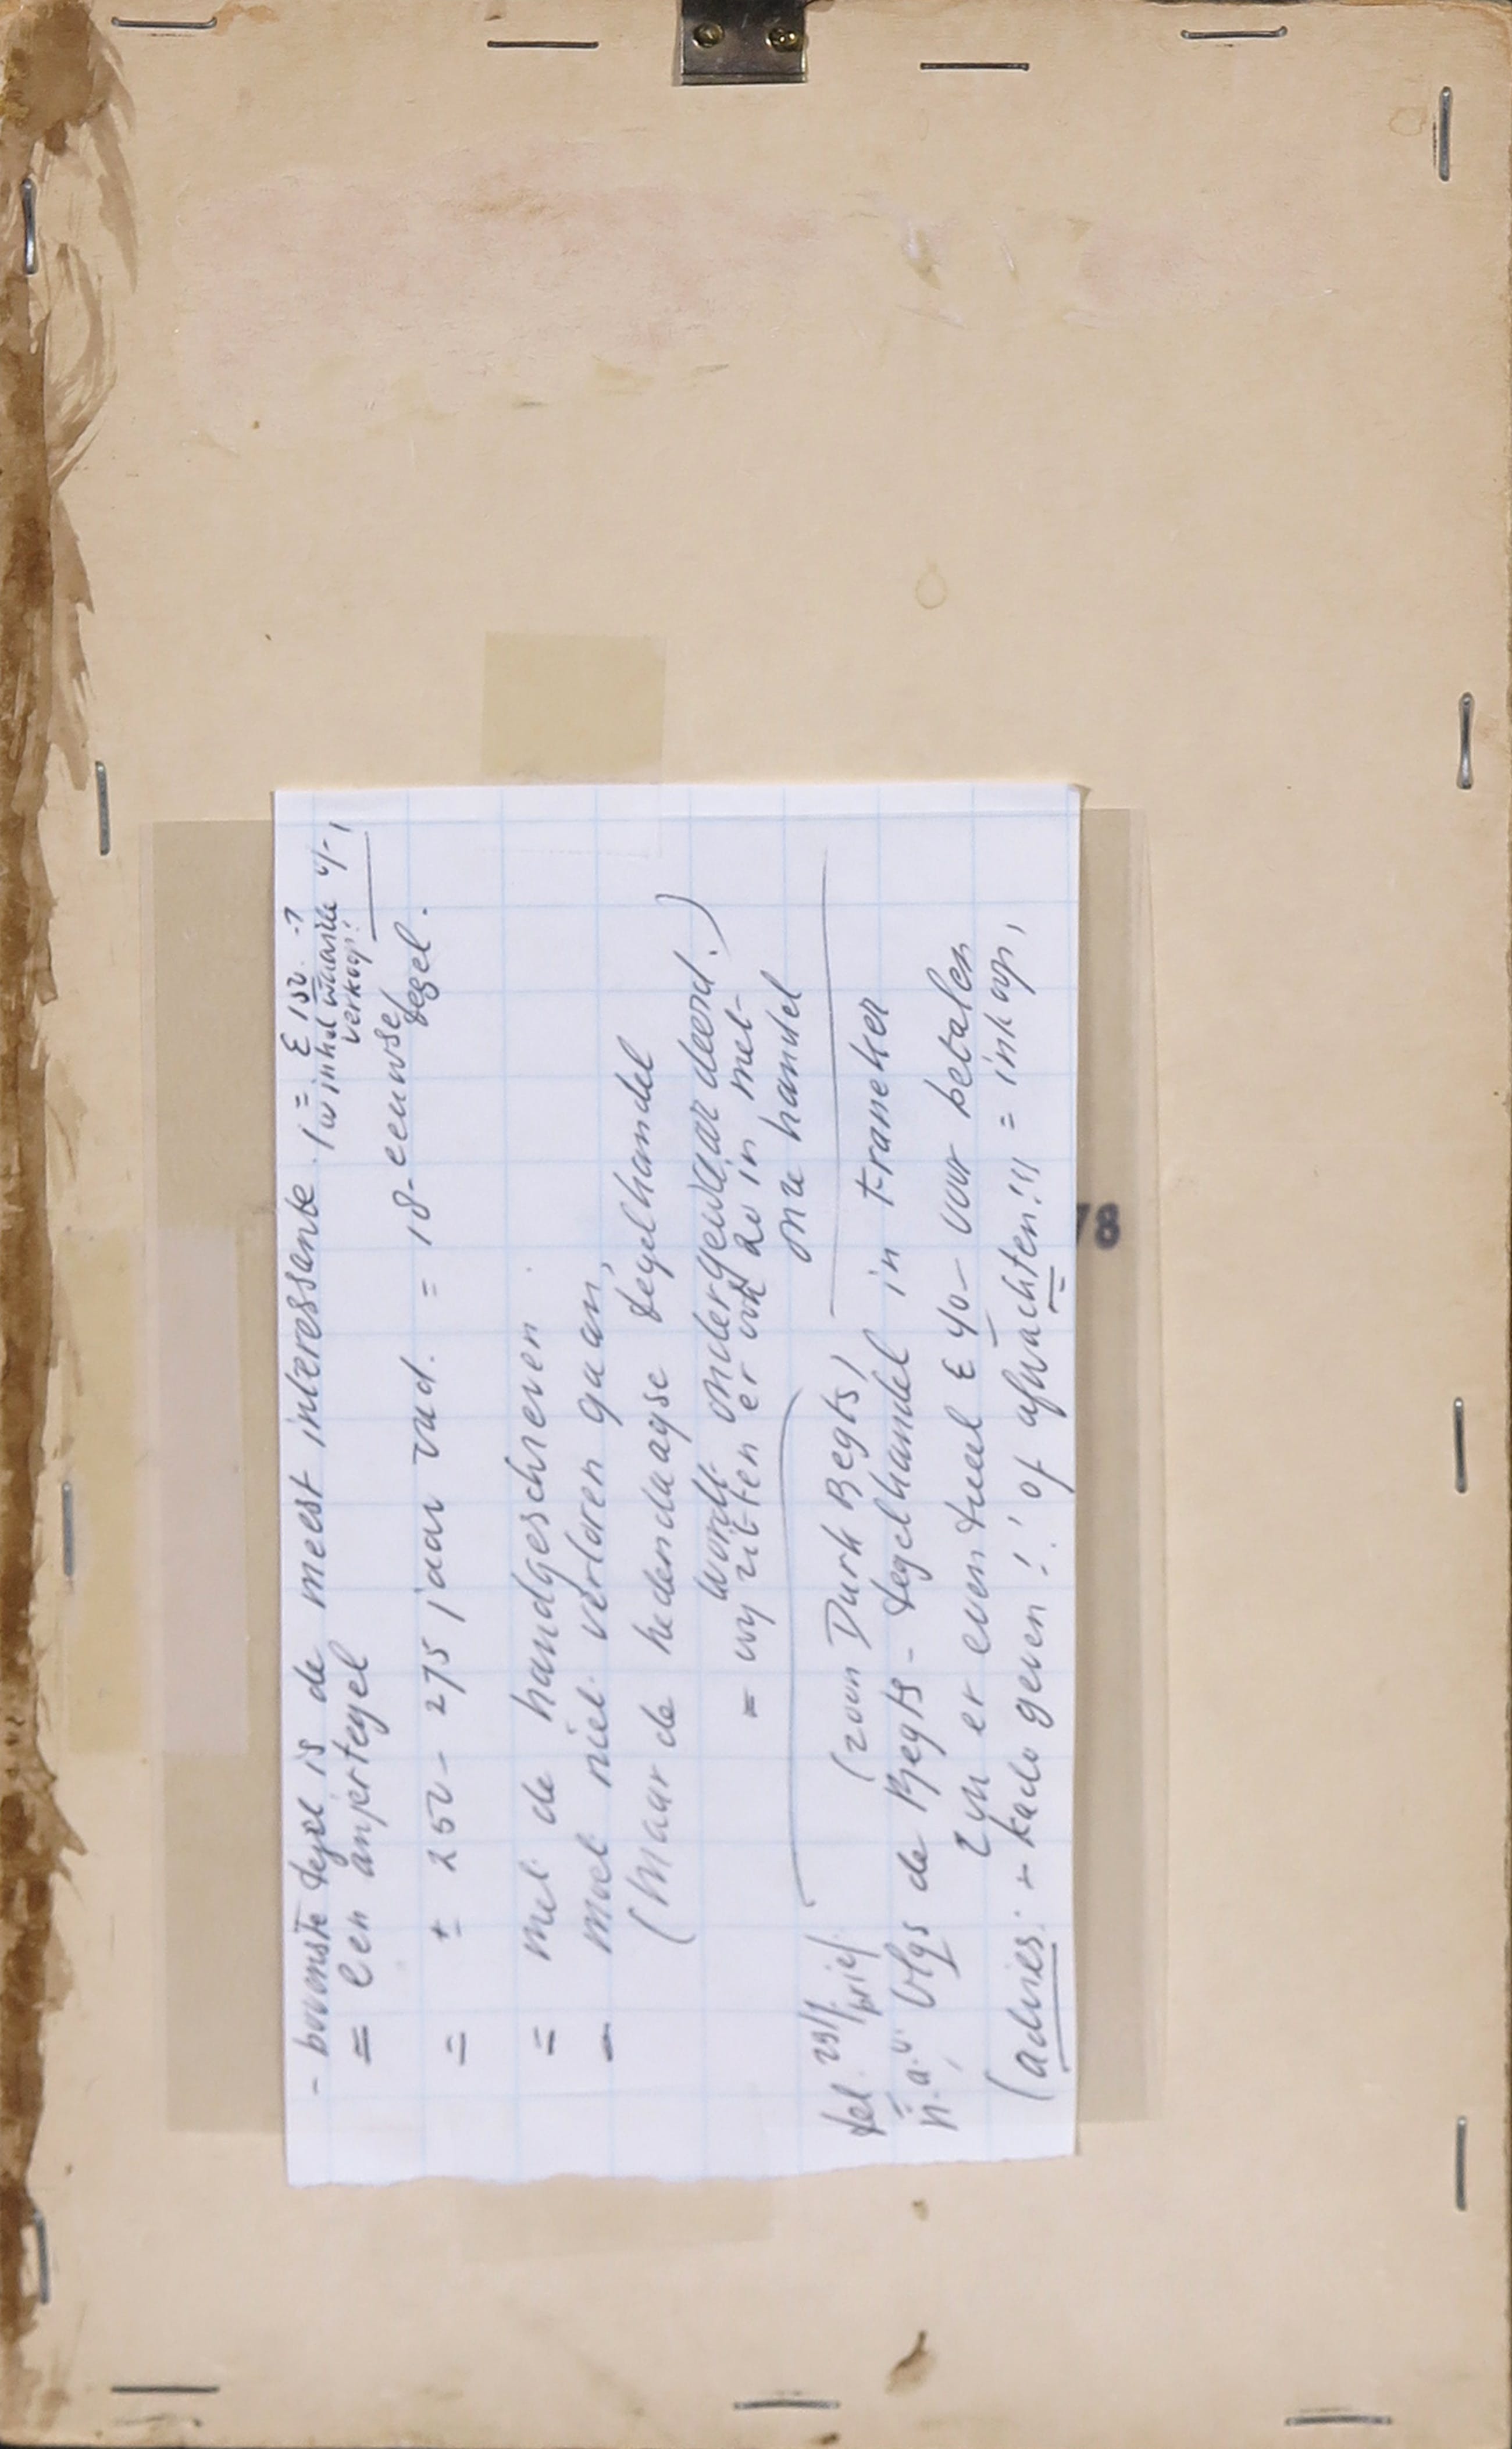 - bovenste tegel is de meest interessante. (= € 150.-?
winkelwaarde 4/-,
verkoop!
= een anjertegel
= ± 250 - 275 jaar oud. = 18-eeuwse tegel.
= met de handgeschreven
- moet niet verloren gaan,
(maar de hedendaagse tegelhandel
wordt ondergewaardeerd.)
= wij zitten er ook zo in met
onze handel
tel. 29/1 (zoon Durk Regts)
n.a.v. brief
Vlgs de Regts - tegelhandel in Franeker
zou er eventueel € 40- voor betalen
(advies: + kado geven!! of afwachten!!! = inkoop,
78